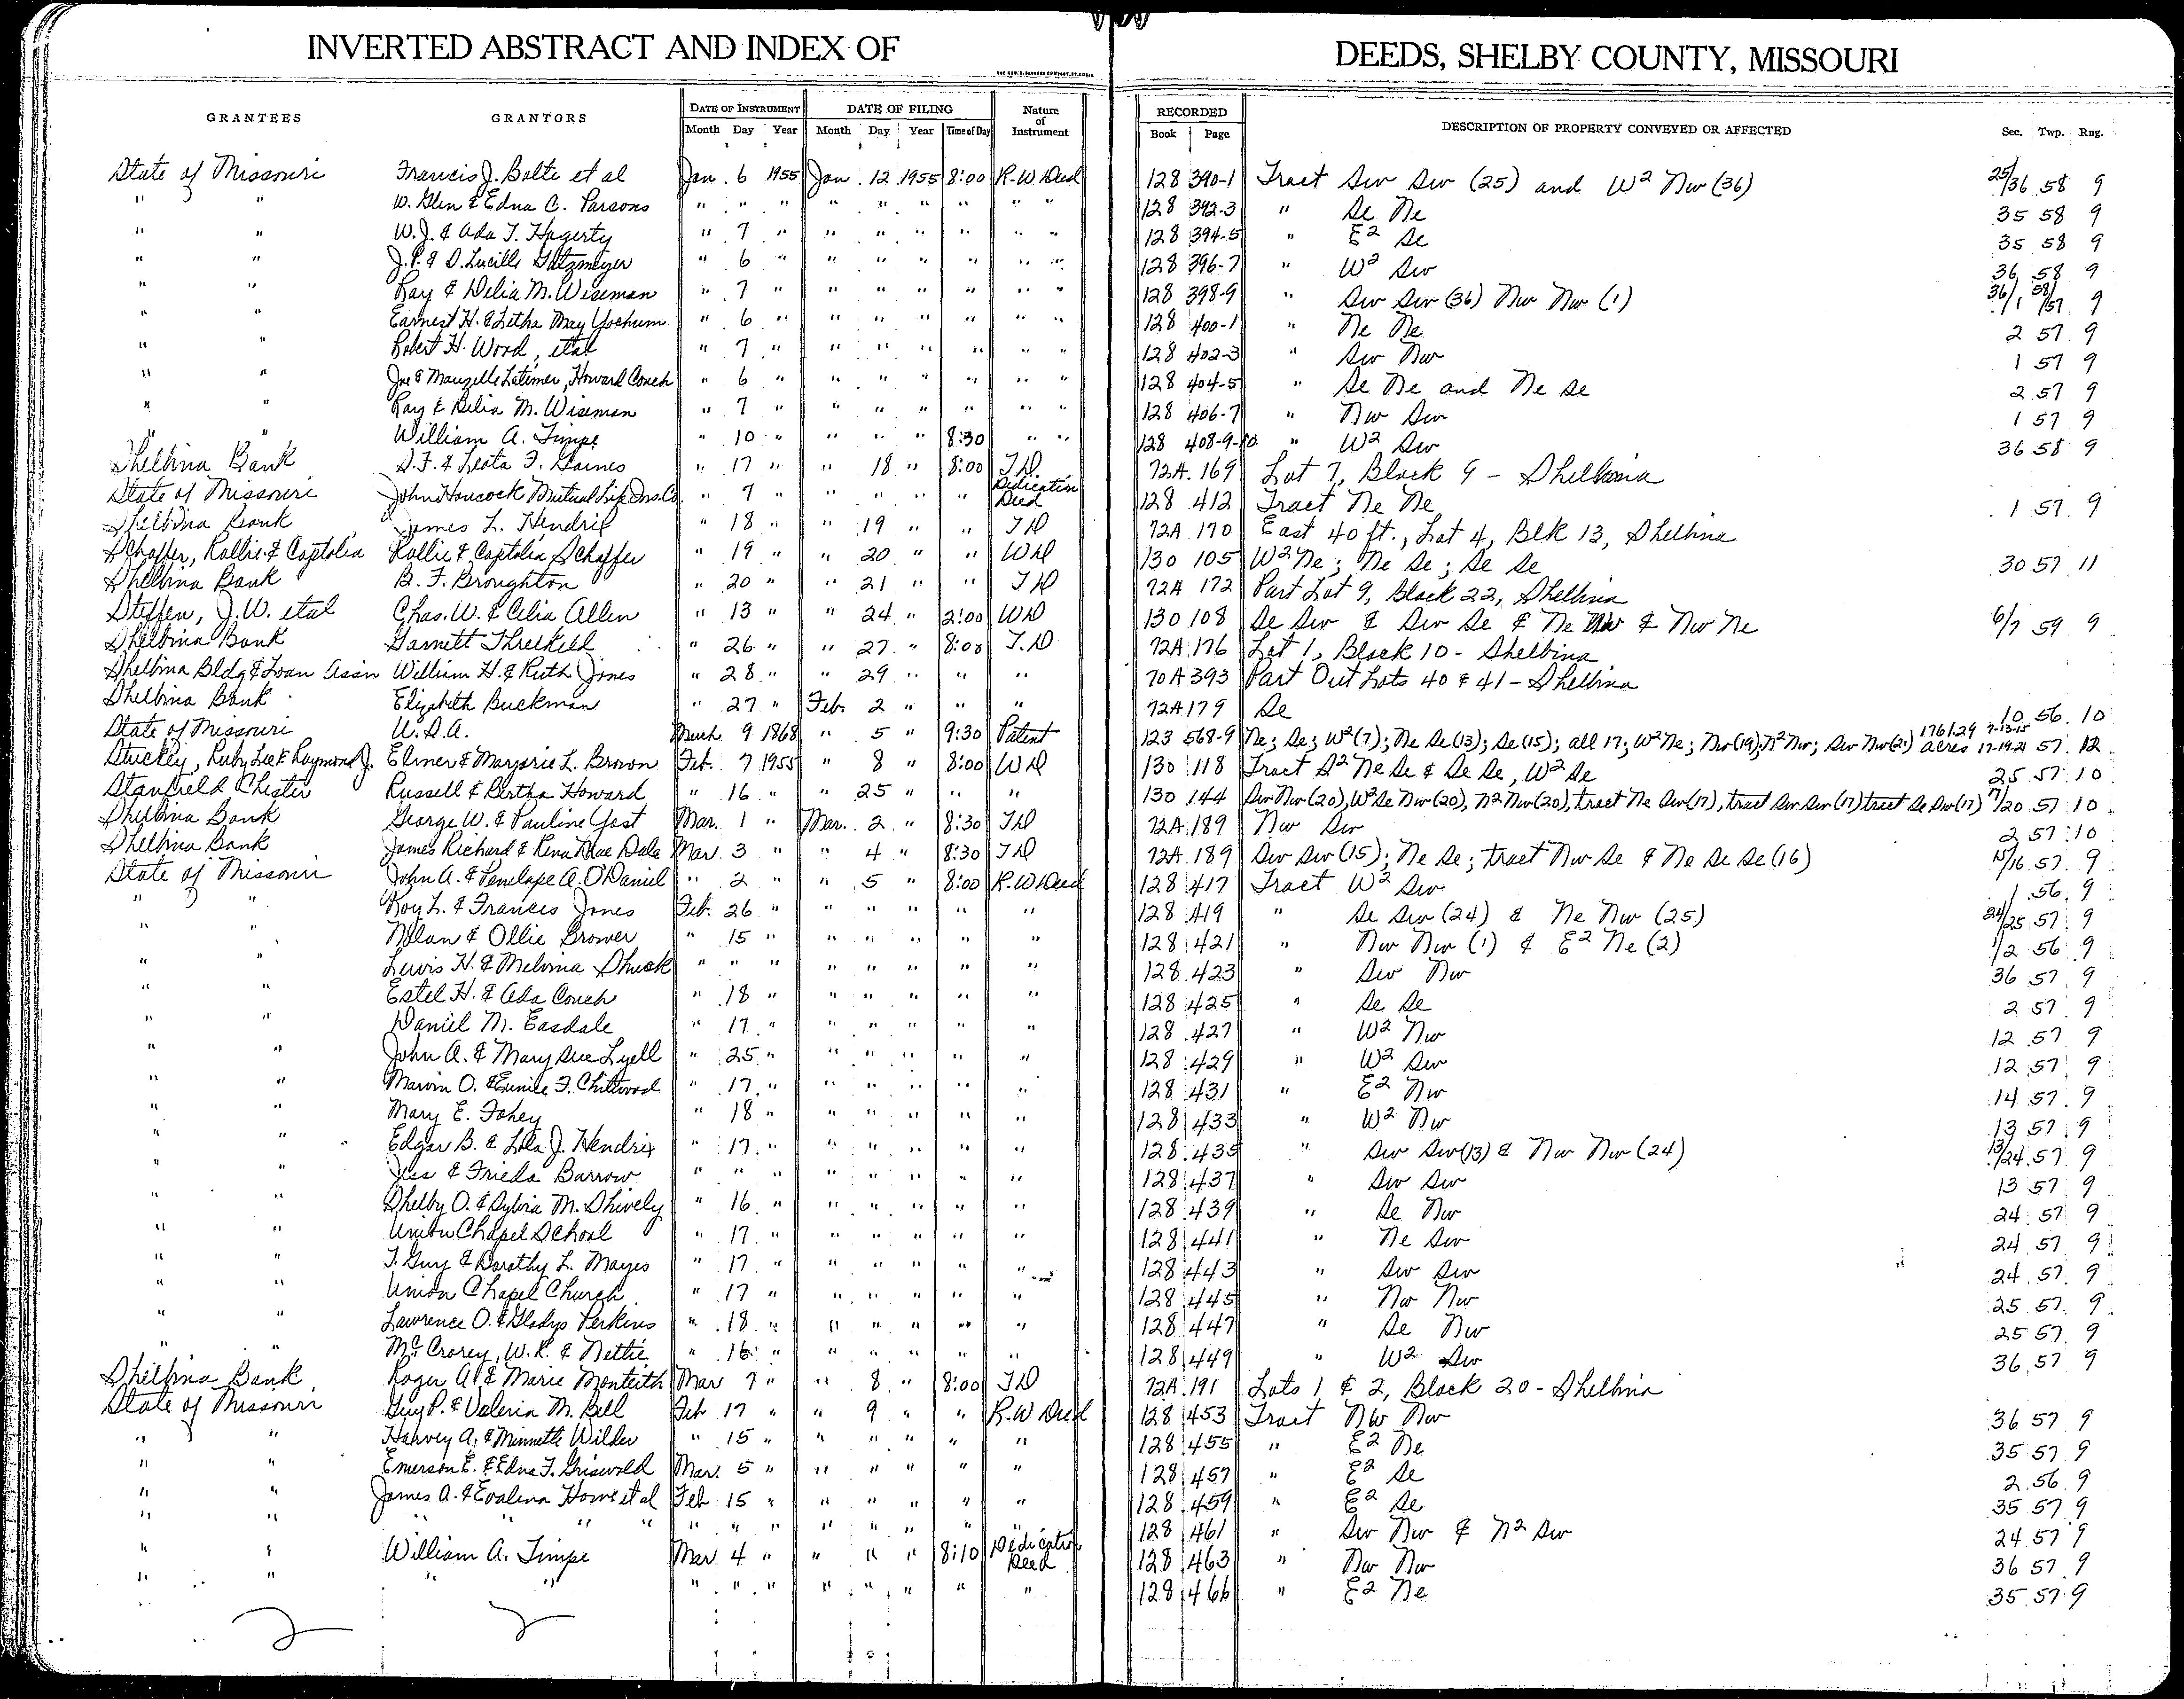 INVERTED ABSTRACT AND INDEX OF DEEDS, SHELBY COUNTY, MISSOURI
GRANTEES GRANTORS DATE OF INSTRUMENT DATE OF FILING Nature of Instrument RECORDED DESCRIPTION OF PROPERTY CONVEYED OR AFFECTED Sec. Twp. Rng.
Month Day Year Month Day Year Time of Day Book Page
State of Missouri Francis J. Bolte et al Jan. 6 1955 Jan. 12 1955 8:00 R.W Deed 128 390-1 Tract Sw Sw (25) and W2 Nw (36) 25/36 58 9
" " W. Glen & Edna C. Parsons " " " " " " " " " 128 392-3 " Se Ne 35 58 9
" " W.J. & Ada T. Hagerty " 7 " " " " " " " 128 394-5 " E2 Se 35 58 9
" " J.P. & D. Lucille Gatzmeyer " 6 " " " " " " " 128 396-7 " W2 Sw 36 58 9
" " Ray & Delia M. Wiseman " 7 " " " " " " " 128 398-9 " Sw Sw (36) Nw Nw (1) 36/1 58/57 9
" " Earnest H. & Letha May Yochum " 6 " " " " " " " 128 400-1 " Ne Ne 2 57 9
" " Robert H. Wood, etal " 7 " " " " " " " 128 402-3 " Sw Nw 1 57 9
" " Joe & Mauzelle Latimer, Howard Couch " 6 " " " " " " " 128 404-5 " Se Ne and Ne Se 2 57 9
" " Ray & Delia M. Wiseman " 7 " " " " " " " 128 406-7 " Nw Sw 1 57 9
" " William A. Timpe " 10 " " " " 8:30 " " 128 408-9-10 " W2 Sw 36 58 9
Shelbina Bank S.F. & Leota F. Gaines " 17 " " 18 " 8:00 T.D. 72A 169 Lot 7, Block 9 - Shelbina
State of Missouri John Hancock Mutual Life Ins. Co. " 7 " " " " " Dedication Deed 128 412 Tract Ne Ne 1 57 9
Shelbina Bank James L. Hendrix " 18 " " 19 " " TD 72A 170 East 40 ft., Lot 4, Blk 13, Shelbina
Schaffer, Rollie & Captolia Rollie & Captolia Schaffer " 19 " " 20 " " WD 130 105 W2 Ne; Ne Se; Se Se 30 57 11
Shelbina Bank B. F. Broughton " 20 " " 21 " " TD 72A 172 Part Lot 9, Block 22, Shelbina
Steffen, J.W. etal Chas. W. & Celia Allen " 13 " " 24 " 2:00 WD 130 108 Se Sw & Sw Se & Ne Nw & Nw Ne 6/7 59 9
Shelbina Bank Garnett Threlkeld " 26 " " 27 " 8:00 T.D 72A 176 Lot 1, Block 10 - Shelbina
Shelbina Bldg & Loan Assn William H. & Ruth Jones " 28 " " 29 " " " 70A 393 Part Out Lots 40 & 41 - Shelbina
Shelbina Bank Elizabeth Buckman " 27 " Feb. 2 " " " 72A 179 Se 10 56 10
State of Missouri U.S.A. March 9 1868 " 5 " 9:30 Patent 123 568-9 Ne; Se; W2 (7); Ne Se (13); Se (15); all 17; W2 Ne; Nw (19); N2 Nw; Sw Nw (21) 1761.29 acres 7-13-15 17-19-21 57 12
Stuckey, Ruby Lee & Raymond J. Elmer & Marjorie L. Brown Feb. 7 1955 " 8 " 8:00 WD 130 118 Tract S2 Ne Se & Se Se, W2 Se 25 57 10
Stanfield Chester Russell & Bertha Howard " 16 " " 25 " " " 130 144 Sw Nw (20), W2 Se Nw (20), N2 Nw (20), tract Ne Sw (17), tract Sw Sw (17) tract Se Sw (17) 17/20 57 10
Shelbina Bank George W. & Pauline Yost Mar. 1 " Mar. 2 " 8:30 TD 72A 189 Nw Sw 2 57 10
Shelbina Bank James Richard & Rena Mae Dale Mar 3 " " 4 " 8:30 TD 72A 189 Sw Sw (15); Ne Se; tract Nw Se & Ne Se Se (16) 15/16 57 9
State of Missouri John A. & Penelope A. O'Daniel " 2 " " 5 " 8:00 R.W Deed 128 417 Tract W2 Sw 1 56 9
" " Roy L. & Francis Jones Feb. 26 " " " " " " 128 419 " Se Sw (24) & Ne Nw (25) 24/25 57 9
" " Nolan & Ollie Brower " 15 " " " " " " 128 421 " Nw Nw (1) & E2 Ne (2) 1/2 56 9
" " Lewis H. & Melvina Shuck " " " " " " " " 128 423 " Sw Nw 36 57 9
" " Estel H. & Ada Couch " 18 " " " " " " 128 425 " Se Se 2 57 9
" " Daniel M. Easdale " 17 " " " " " " 128 427 " W2 Nw 12 57 9
" " John A. & Mary Sue Lyell " 25 " " " " " " 128 429 " W2 Sw 12 57 9
" " Marvin O. & Eunice F. Chitwood " 17 " " " " " " 128 431 " E2 Nw 14 57 9
" " Mary E. Fohey " 18 " " " " " " 128 433 " W2 Nw 13 57 9
" " Edgar B. & Lola J. Hendrix " 17 " " " " " " 128 435 " Sw Sw (13) & Nw Nw (24) 13/24 57 9
" " Jess & Frieda Barrow " " " " " " " " 128 437 " Sw Sw 13 57 9
" " Shelby O. & Sylvia M. Shively " 16 " " " " " " 128 439 " Se Nw 24 57 9
" " Union Chapel School " 17 " " " " " " 128 441 " Ne Sw 24 57 9
" " T. Guy & Dorothy L. Mayes " 17 " " " " " " 128 443 " Sw Sw 24 57 9
" " Union Chapel Church " 17 " " " " " " 128 445 " Nw Nw 25 57 9
" " Lawrence O. & Gladys Perkins " 18 " " " " " " 128 447 " Se Nw 25 57 9
" " McCrorey, W.R. & Nettie " 16 " " " " " " 128 449 " W2 Sw 36 57 9
Shelbina Bank Roger A. & Marie Monteith Mar 7 " " 8 " 8:00 TD 72A 191 Lots 1 & 2, Block 20 - Shelbina
State of Missouri Guy P. & Valeria M. Bell Feb 17 " " 9 " " R.W Deed 128 453 Tract NW Nw 36 57 9
" " Harvey A. & Minnette Wilder " 15 " " " " " " 128 455 " E2 Ne 35 57 9
" " Emerson E. & Edna F. Griswold Mar. 5 " " " " " " 128 457 " E2 Se 2 56 9
" " James A. & Evalena Howe et al Feb. 15 " " " " " " 128 459 " E2 Se 35 57 9
" " " " " " " " " " " " " " 128 461 " Sw Nw & N2 Sw 24 57 9
" " William A. Timpe Mar. 4 " " " " 8:10 Dedication Deed 128 463 " Nw Nw 36 57 9
" " " " " " " " " " " " 128 466 " E2 Ne 35 57 9